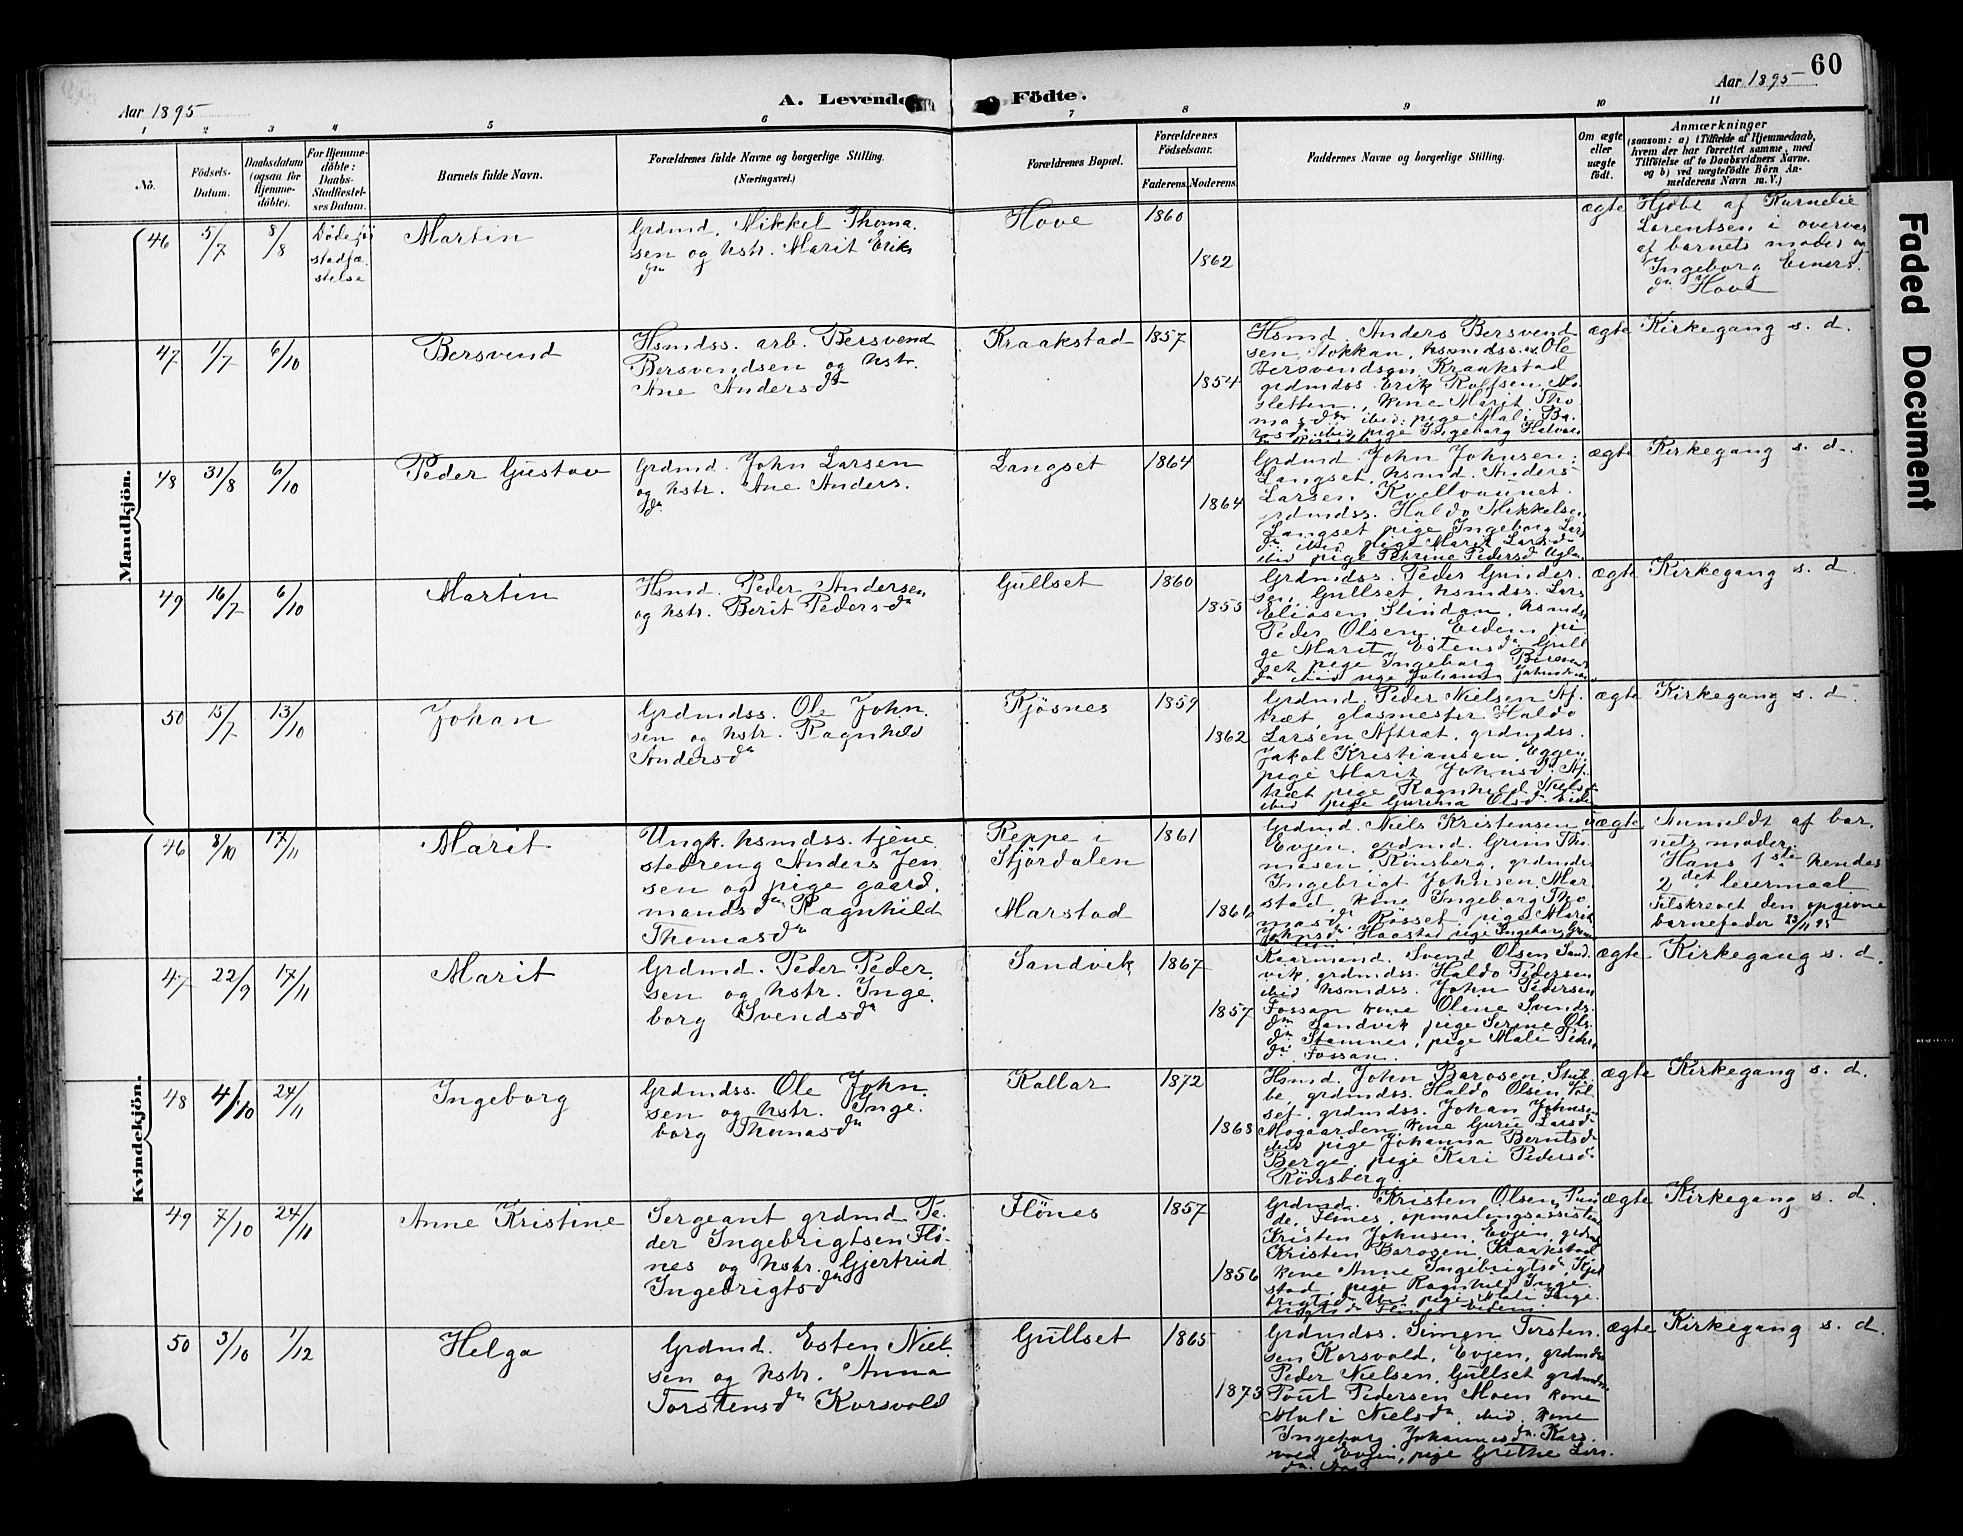 60
Aar 1895
A. Levende Födte.
Aar 1895
1 2 3 4 5 6 7 8 9 10 11
No.
Födsels-Datum.
Daabsdatum (ogsaa for Hjemme-döbte).
For Hjemme-döbte: Daabs-Stadfæstel-ses Datum.
Barnets fulde Navn.
Forældrenes fulde Navne og borgerlige Stilling. (Næringsvei.)
Forældrenes Bopæl.
Forældrenes Födselsaar.
Faderens. Moderens.
Faddernes Navne og borgerlige Stilling.
Om ægte eller uægte födt.
Anmærkninger
(saasom: a) i Tilfælde af Hjemmedaab,
hvem der har forrettet samme, med
Tilföielse af to Daabsvidners Navne.
og b) ved uægtefödte Börn An-
melderens Navn m. V.)
Mandkjön.
46 5/7 8/8
Döde før
stadfæ
stelse
Martin
Grdmd. Mikkel Thoma
sen og hstr. Marit Eriks
da
Hove
1860
1862
ægte
Hjdbt af Karnelie
Lorentsen i overvær
af barnets moder og
Ingeborg Einers
da Hove
47 1/7 6/10
Bersvend
Hsmdss. arb. Bersvend
Bersvendsen og hstr.
Ane Andersda
Kraakstad
1857
1854
Hsmd. Anders Bersvend
sen Stokkan, hsmdss. Ole
Bersvendsen Kraakstad
grdmdss. Erik Rolfsen Mo
sletten, kone Marit Tho
masda ibid. pige Mali Ba
ibid pige Ingeborg Halvors
ægte
Kirkegang s. d.
48 31/8 6/10
Peder Gustav
Grdmd. John Larsen
og hstr. Ane Anders.
da
Langset
1864
1864
Grdmd. John Johnsen
Langset, hsmd. Anders
Larsen Kvellvaunet.
grdmdss. Haldo Mikkelsen
Langset pige Ingeborg Lars
da ibid pige Marit Larsda
ibid pige Petrine Pedersd
ægte
Kirkegang s. d.
49 16/7 6/10
Martin
Hsmd. Peder Andersen
og hstr. Berit Pedersda
Gullset
1860
1855
Grdmdss. Peder Gunder
sen Gullset, hsmdss. Lars
Eliasen Slindan, hsmdss
Peder Olsen Eidem pi
ge Marit Estensda Gull
set pige Ingeborg Bersvend
da ibid pige Juliana
ægte
Kirkegang s. d.
50 15/7 13/10
Johan
Grdmdss. Ole John
sen og hstr. Ragnhild
Andersda
Kjösnes
1859
1862
Grdmd Peder Nielsen Af
træt, glasmester Haldo
Larsen Aftræt, grdmdss.
Jakob Kristiansen Eggen
pige Marit Johnsd. Af
træt pige Ragnhild Nielsd
ibid pige Gurina Olsd.
ægte
Kirkegang s. d.
Kvindekjön.
46 8/10 17/11
Marit
Ungk. hsmdss. tjene
stedreng Anders Jen
sen og pige gaard.
mandsda Ragnhild
Thomasda
Reppe i
Stjördalen
Marstad
1861
Grdmd. Niels Kristensen
Evjen, grdmd. Grim Tho
masen Rönsberg, grdmdss
Ingebrigt Johnsen Mar
stad kone Ingeborg Tho
masda Rosset, pige Marit
Johnsda Haastad pige Ingeborg
uægte
Anmeldt af bar.
nets moder.
Hans 1ste hendes
2det leiermaal
Tilskrevet den opgivne
barnefader 23/11 95
47 22/9 17/11
Marit
Grdmd. Peder Peder
sen og hstr. Inge
borg Svendsda
Sandvik
1867
1857
Kaarmand. Svend Olsen Sand
vik, grdmdss. Haldo Pedersen
ibid hsmdss. John Pedersen
Fossan kone Oline Svends
da Sandvik pige Serine Ols
da Stamnes, pige Mali Peders
da Fossan.
ægte
Kirkegang s. d.
48 4/10 24/11
Ingeborg
Grdmdss. Ole John
sen og hstr. Inge.
borg Thomasda
Kallar
1872
1868
Hsmd. John Barosen Stub
be, grdmdss. Haldo Olsen Föl
set, grdmdss. Johan Johnsen
Mogaarden kone Guru Larsd
ibid pige Johanna Berntsd
Berge pige Kari Pedersd
Rönsberg.
ægte
Kirkegang s. d.
49 7/10 24/11
Anne Kristine
Sergeant grdmd Pe.
der Ingebrigtsen Flö.
nes og hstr. Gjertrud
Ingebrigtsda
Flönes
1857
1856
Grdmd. Kristen Olsen
Flönes, opmaalingsassistent
Kristen Johnsen, Evjen, grdmd
Kristen Barosen Kraakstad
kone Anne Ingebrigtsd. Kjel
stad, pige Ragnhild Inge
brigtsd ibid pige Mali Inge.
brigtsda Flönes
ægte
Kirkegang s. d.
50 3/10 1/12
Helga
Grdmd. Esten Niel
sen og hstr. Anna
Torstensda Korsvold
Gullset
1865
1873
Grdmdss. Simen Torsten
sen Korsvold, Evjen, grdmdss
Peder Nielsen, Gullset grdmdss
Poul Pedersen Moen kone
Mali Nielsda ibid. kone
Ingeborg Johannesda Kors
vold Evjen, pige Grethe Lars
ægte
Kirkegang s. d.
Faded Document